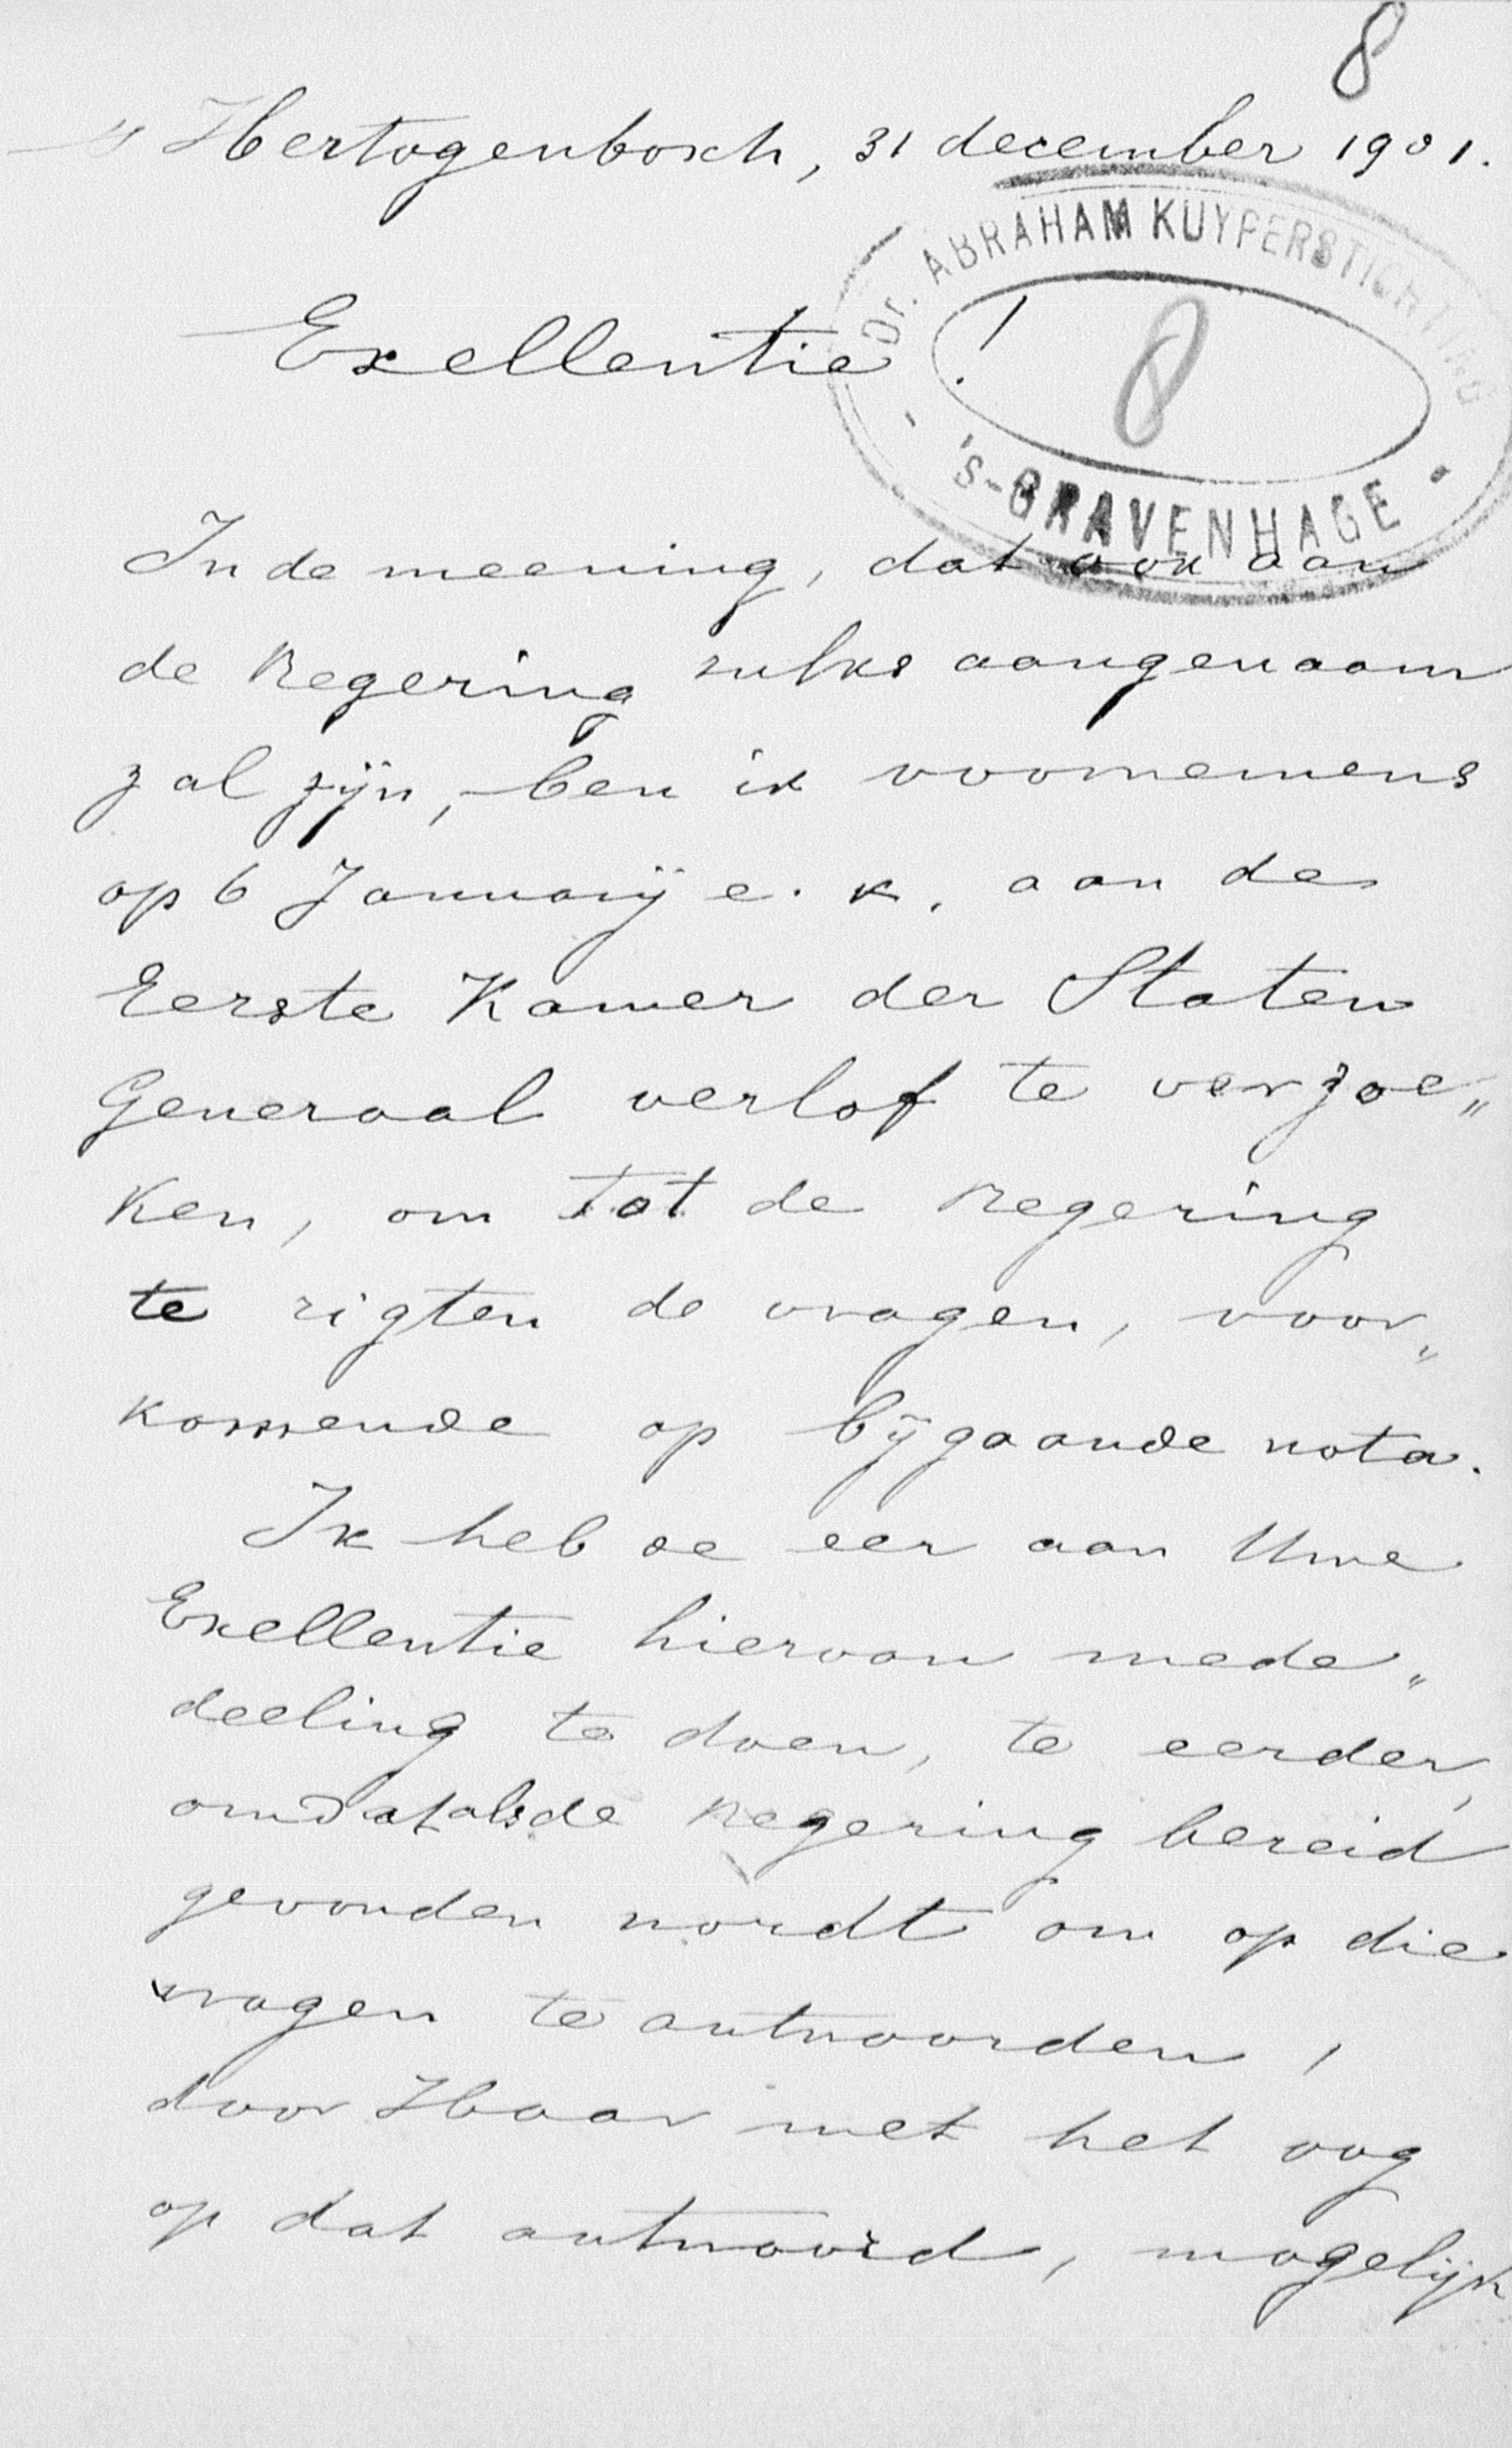 8
's Hertogenbosch, 31 december 1901.
Dr. ABRAHAM KUYPERSTICHTING
8
- 's-GRAVENHAGE -
Exellentie!
In de meening, dat ook aan
de Regering zulks aangenaam
zal zijn, ben ik voornemens
op 6 Januarij e. k. aan de
Eerste Kamer der Staten
Generaal verlof te verzoe„
ken, om tot de Regering
te rigten de vragen, voor„
komende op bijgaande nota.
Ik heb de eer aan Uwe
Exellentie hiervan mede„
deeling te doen, te eerder,
omdat als de Regering bereid
gevonden wordt om op die
vragen te antwoorden,
door Haar met het oog
op dat antwoord, mogelijk